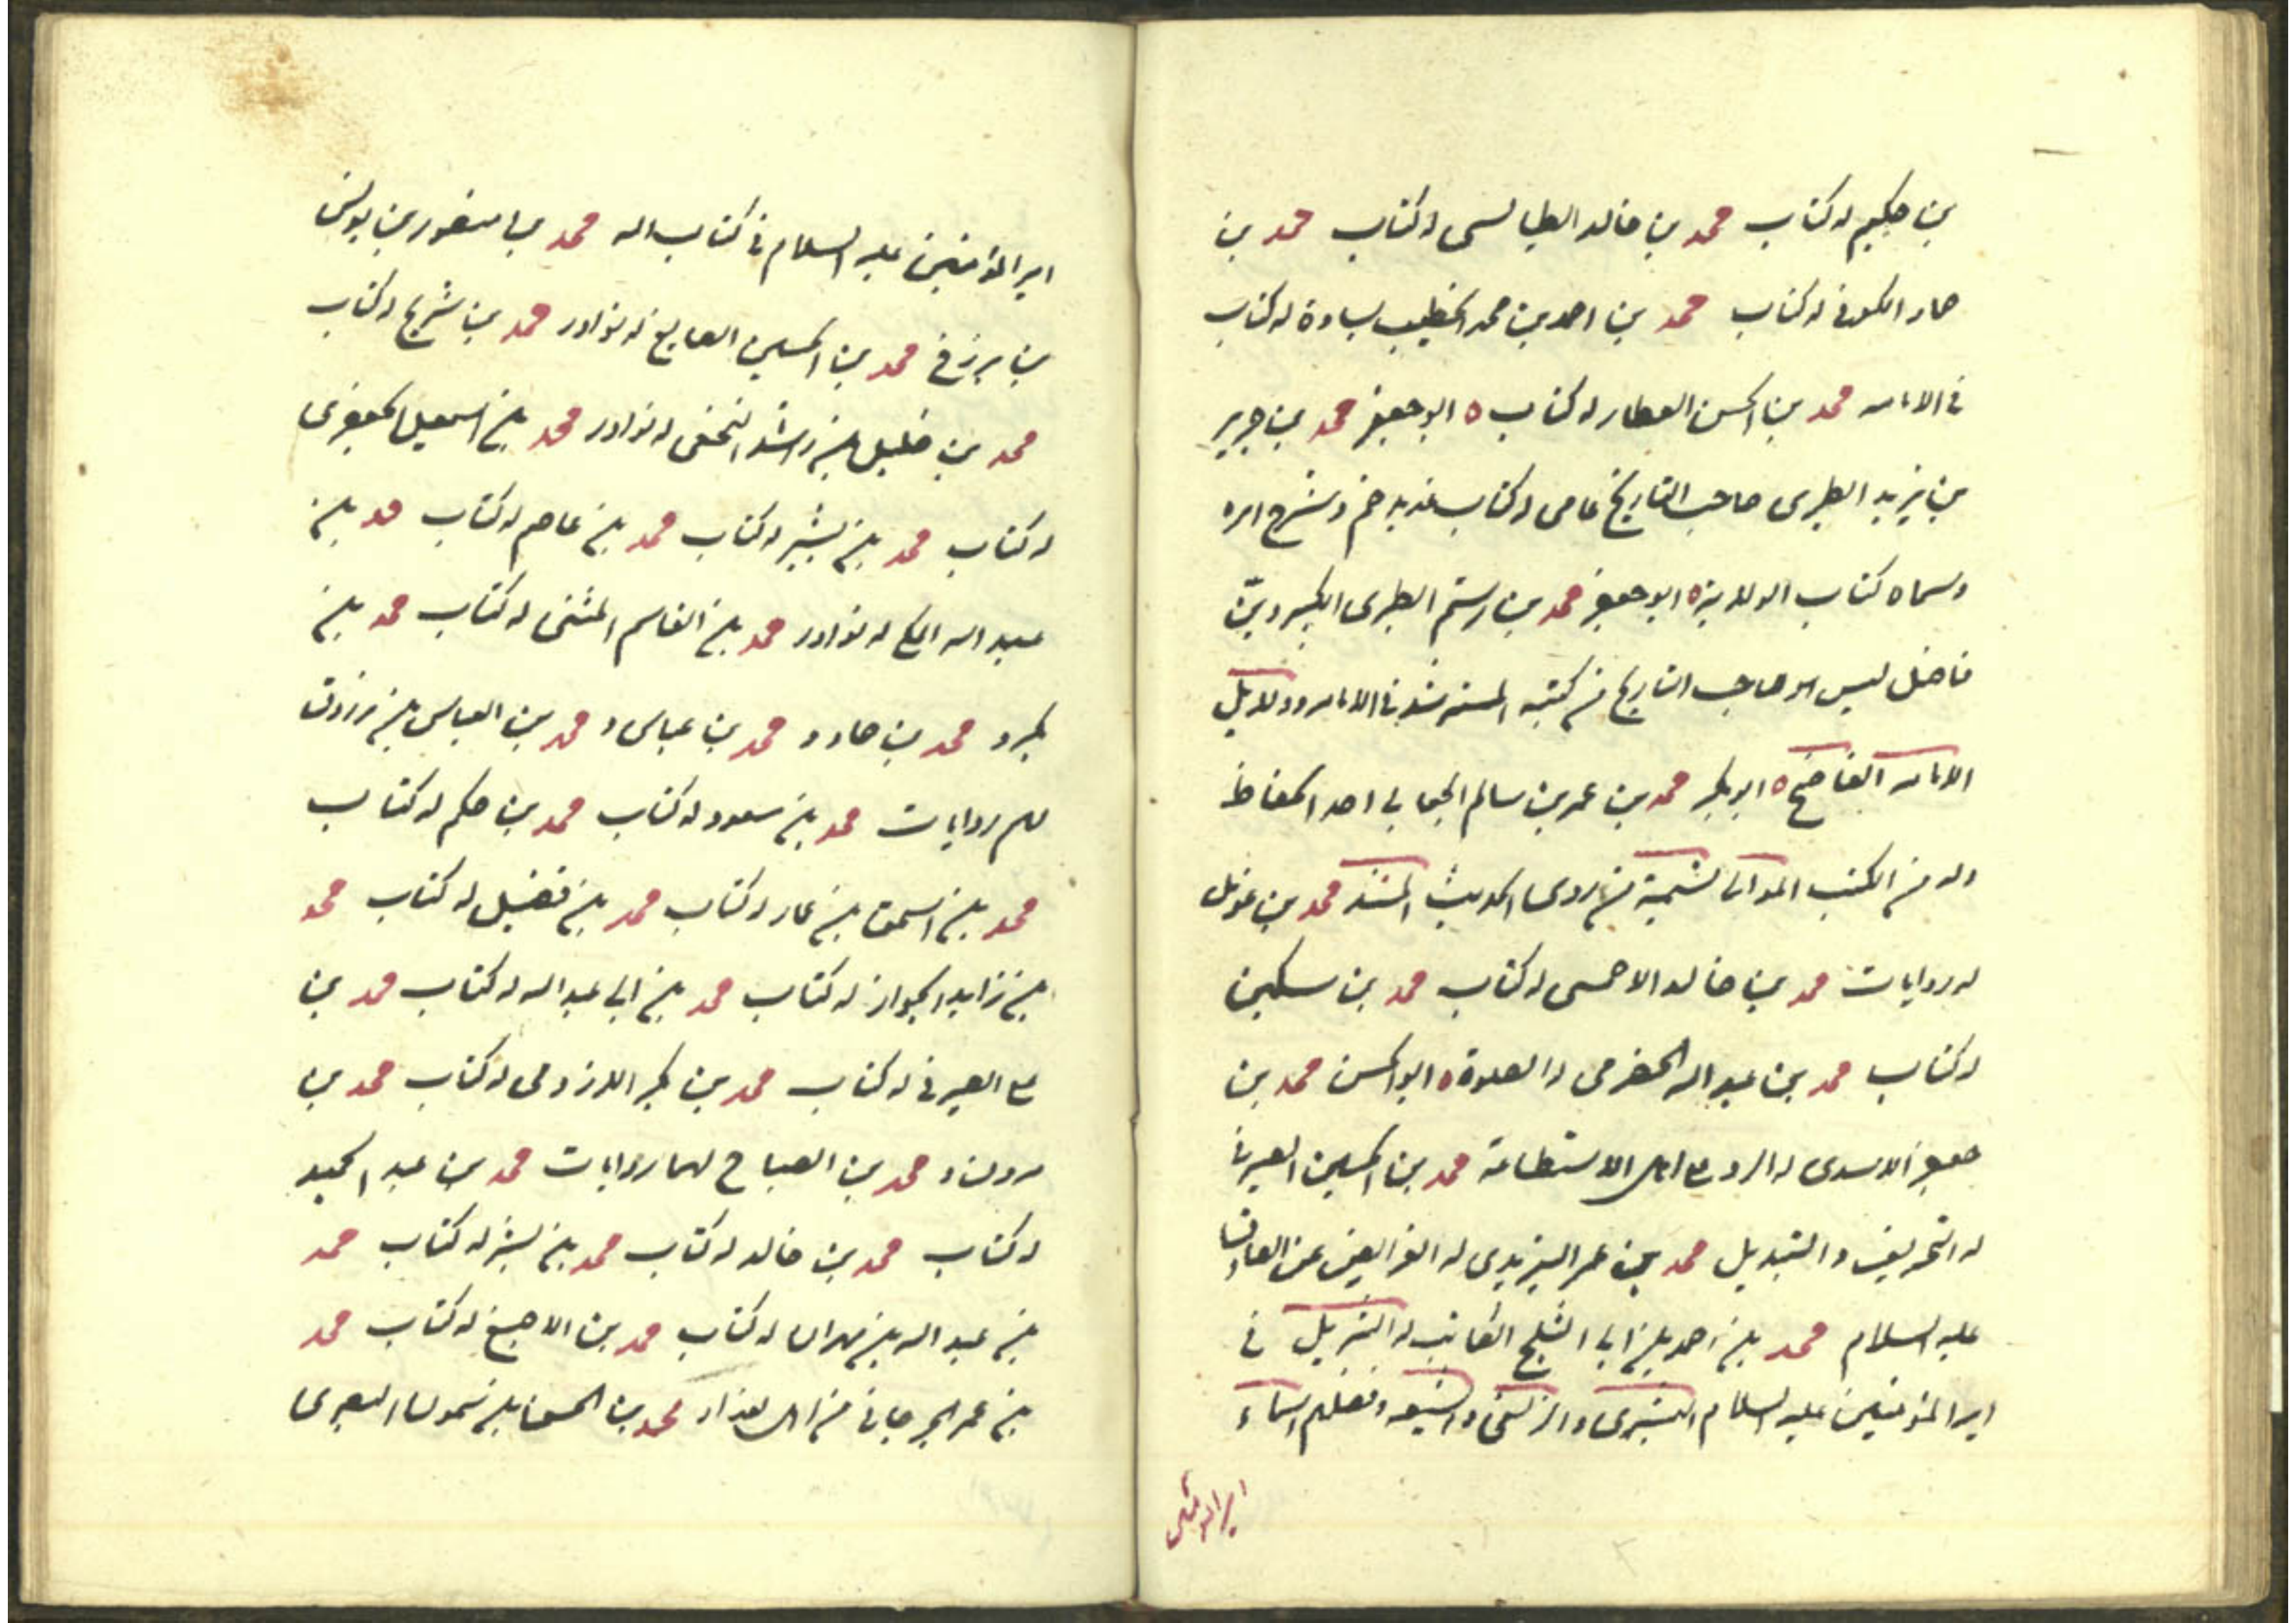 بن حكيم له كتاب محمد بن خالد الطيالسى له كتاب محمد بن
حماد الكوفى له كتاب محمد بن احمد بن محمد الخطيب بساوة له كتاب
فى الامامه محمد بن الحسن العطار له كتاب ه ابو جعفر محمد بن جرير
بن يزيد الطبرى صاحب التاريخ عامى له كتاب غدير خم و شرح امره
وسماه كتاب الولاية ه ابو جعفر محمد بن رستم الطبرى الكبير ديّن
فاضل ليس هو صاحب التاريخ من كتبه المسترشد فى الامامه ودلايل
الامامه الفاضح ه ابو بكر محمد بن عمر بن سالم الجعابى احد الحفاظ
وله من الكتب الموالى تسمية من روى الحديث المسند محمد بن
له روايات محمد بن خالد الاحمسى له كتاب محمد بن سكين
له كتاب محمد بن عبد الله الحضرمى له الصلوة ه ابو الحسن محمد بن
جعفر الاسدى له الرد على اهل الاستطاعة محمد بن الحسين الصيرفى
له التحريف والتبديل محمد بن عمر الزيدى له الفرايض عن الصادق
عليه السلام محمد بن احمد بن ابى الثلج الكاتب له التنزيل فى
امير المؤمنين عليه السلام البشرى والزلفى و الشيعه وفضلهم اسماء
امير المؤمنين
امير المؤمنين عليه السلام فى كتاب الله محمد بن منصور بن يونس
بن بزرج محمد بن الحسين الصايغ له نوادر محمد بن شريح له كتاب
محمد بن خليل بن راشد النخعى له نوادر محمد بن اسمعيل الجعفرى
له كتاب محمد بن بشير له كتاب محمد بن عاصم له كتاب محمد بن
عبد الله له نوادر محمد بن القاسم المثنى له كتاب محمد بن
بكر و محمد بن حماد و محمد بن عباس و محمد بن العباس بن مرزوق
لهم روايات محمد بن مسعود له كتاب محمد بن حكم له كتاب
محمد بن اسحق بن عمار له كتاب محمد بن فضيل له كتاب محمد
بن زايد الجواز له كتاب محمد بن ابى عبد الله له كتاب محمد بن
على الصيرفى له كتاب محمد بن بكر الازدى له كتاب محمد بن
مرون و محمد بن الصباح لهما روايات محمد بن عبد الحميد
له كتاب محمد بن خالد له كتاب محمد بن بشر له كتاب محمد
بن عبد الله بن مهران له كتاب محمد بن الاصبغ له كتاب محمد
بن عمر الجرجانى من اهل بغداد محمد بن الحسن بن شمون البصرى